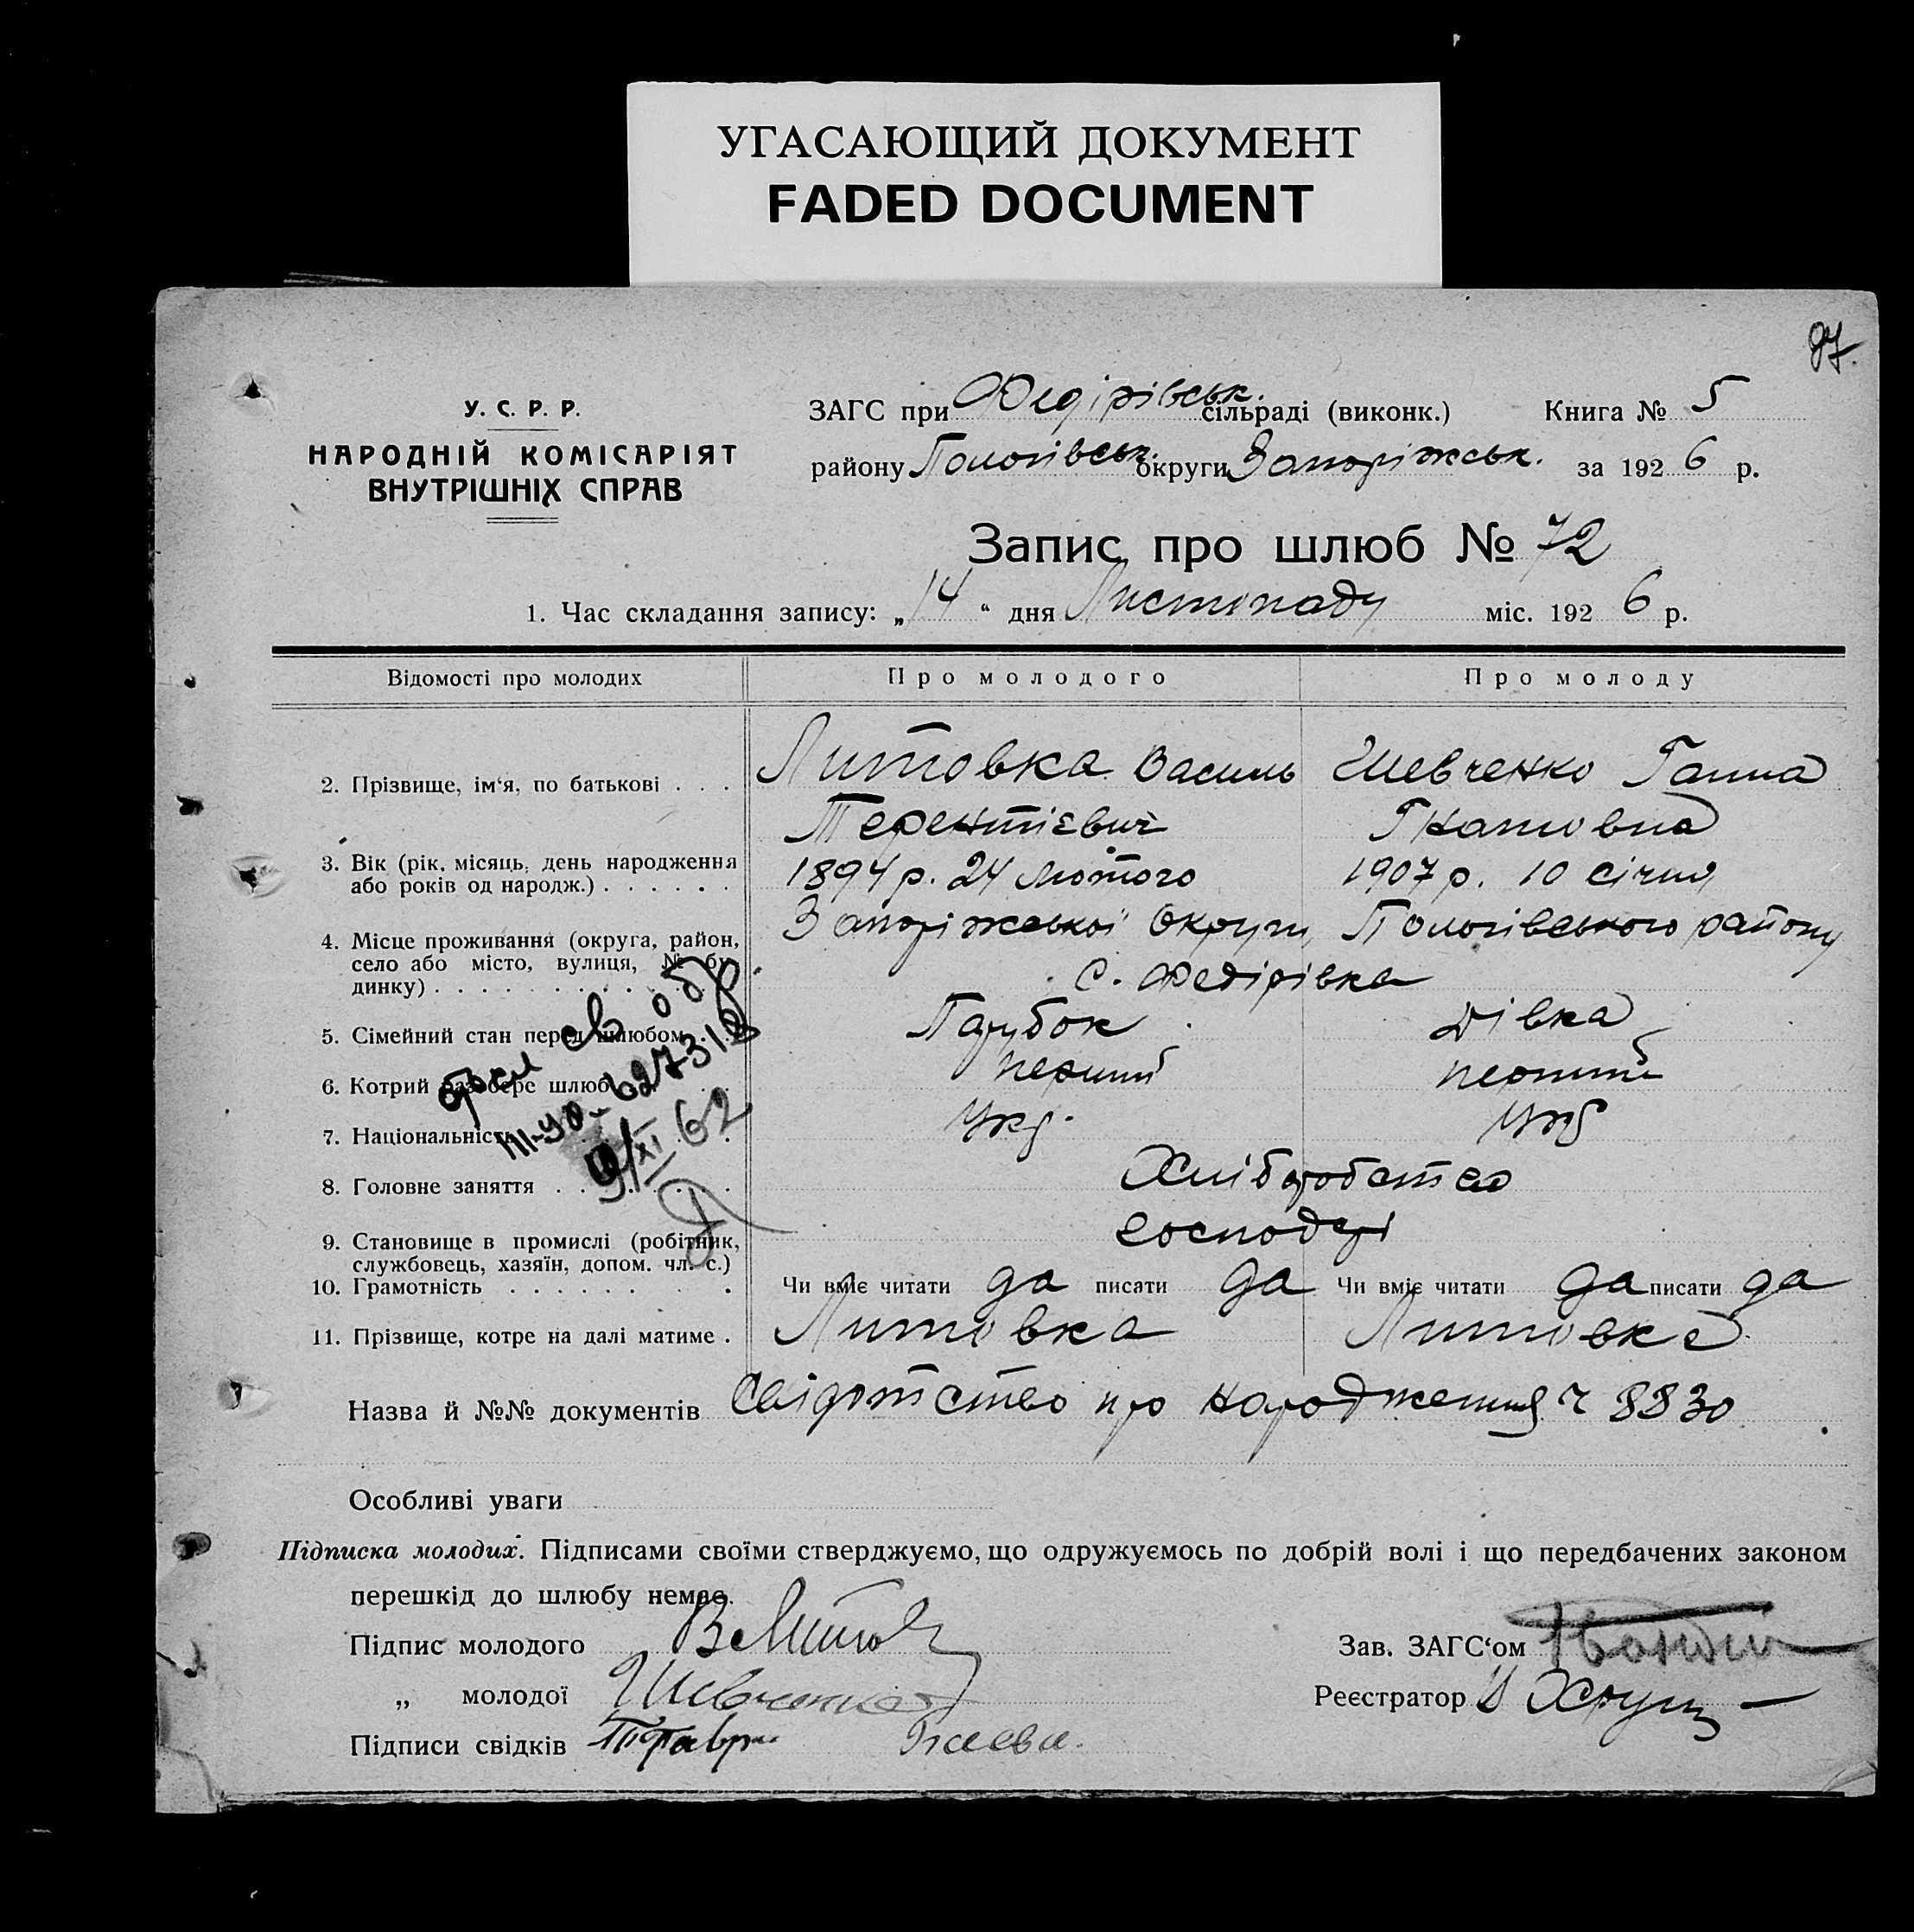 УГАСАЮЩИЙ ДОКУМЕНТ
FADED DOCUMENT
97.
У. С. Р. Р.
НАРОДНІЙ КОМІСАРІЯТ
ВНУТРІШНІХ СПРАВ
ЗАГС при Федірівськ. сільраді (виконк.) Книга № 5
району Пологівськ. округи Запоріжськ. за 1926 р.
Запис про шлюб № 72
1. Час складання запису: „14“ дня Листопаду міс. 1926 р.
Відомості про молодих Про молодого Про молоду
2. Прізвище, ім‘я, по батькові . . . Литовка Василь Шевченко Ганна
Терентієвич Гнатовна
3. Вік (рік, місяць, день народження 1894 р. 24 Лютого 1907 р. 10 січня
або років од народж.) . . . . . .
4. Місце проживання (округа, район, Запоріжської Округи Пологівського району
село або місто, вулиця, № бу-
динку) . . . с. Федірівка
5. Сімейний стан перед шлюбом . . Парубок Дівка
6. Котрий раз бере шлюб . . . перший перший
7. Національність . . . Укр. Укр
8. Головне заняття . . . Хліборобство
9. Становище в промислі (робітник, господарі
службовець, хазяїн, допом. чл. с.)
10. Грамотність . . . . . . Чи вміє читати да писати да Чи вміє читати да писати да
11. Прізвище, котре на далі матиме . Литовка Литовка
св обр.
III-
9/XI 62
Назва й №№ документів Свідотство про народження Ч 8830
Особливі уваги
Підписка молодих. Підписами своїми стверджуємо, що одружуємось по добрій волі і що передбачених законом
перешкід до шлюбу немає.
Підпис молодого ВеЛитов Зав. ЗАГС‘ом
„ молодої Шевченко Реєстратор
Підписи свідків